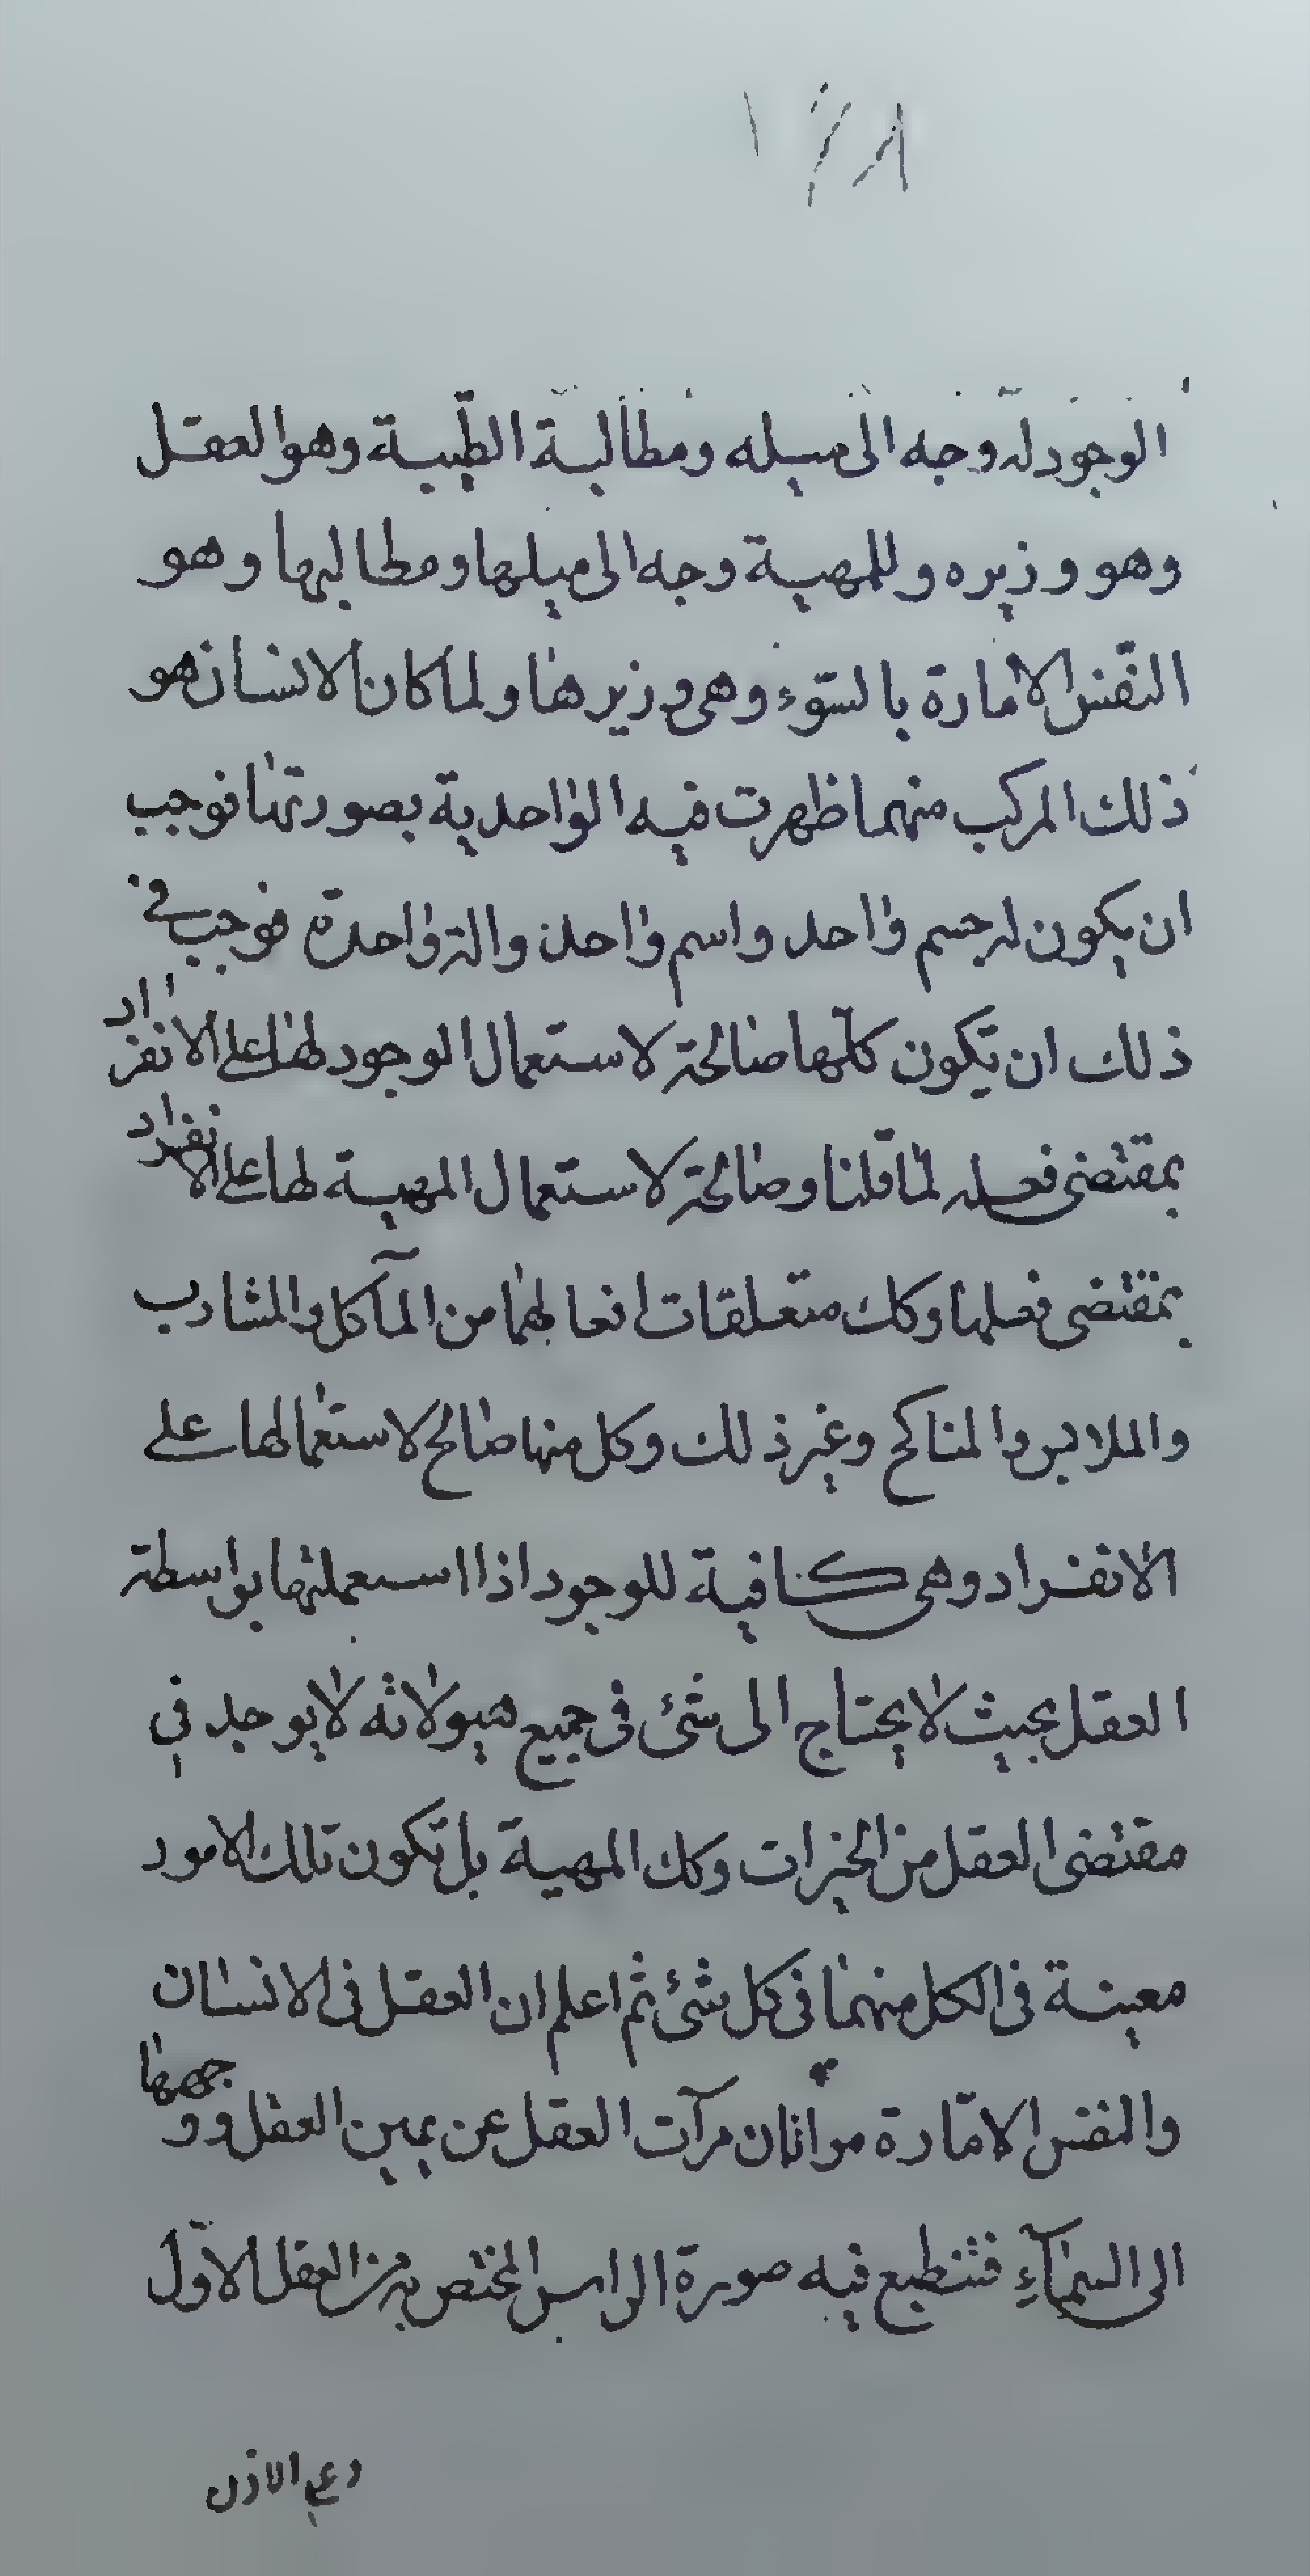 الوجود له وجه الى ميله ومطالبة الطّيبة وهو العقل
وهو وزيره وللمهية وجه الى ميلها ومطالبها وهو
النّفس الامارة بالسّوء وهى وزيرها ولما كان الانسان هو
ذلك المركب منهما ظهرت فيه الواحدية بصورتها فوجب
ان يكون له جسم واحد واسم واحد والة واحدة فوجب في
ذلك ان تكون كلّها صالحة لاستعمال الوجود لها على الانفراد
بمقتضى فعله لما قلنا وصالحة لاستعمال المهية لها على الانفراد
بمقتضى فعلها وكك متعلقات افعالهما من المآكل والمشارب
والملابس والمناكح وغير ذلك وكل منها صالح لاستعمالها على
الانفراد وهى كافية للوجود اذا استعملتها بواسطة
العقل بحيث لا يحتاج الى شئ فى جميع هيولاته لا يوجد في
مقتضى العقل من الخيرات وكك المهية بل تكون تلك الامور
معينة فى الكل منهما فى كل شئ ثم اعلم ان العقل فى الانسان
والنفس الامّارة مراتان مرآت العقل عن يمين العقل ووجهها
الى السّمآء فتنطبع فيه صورة الراس المختص به من العقل الاوّل
وعلى الاذن